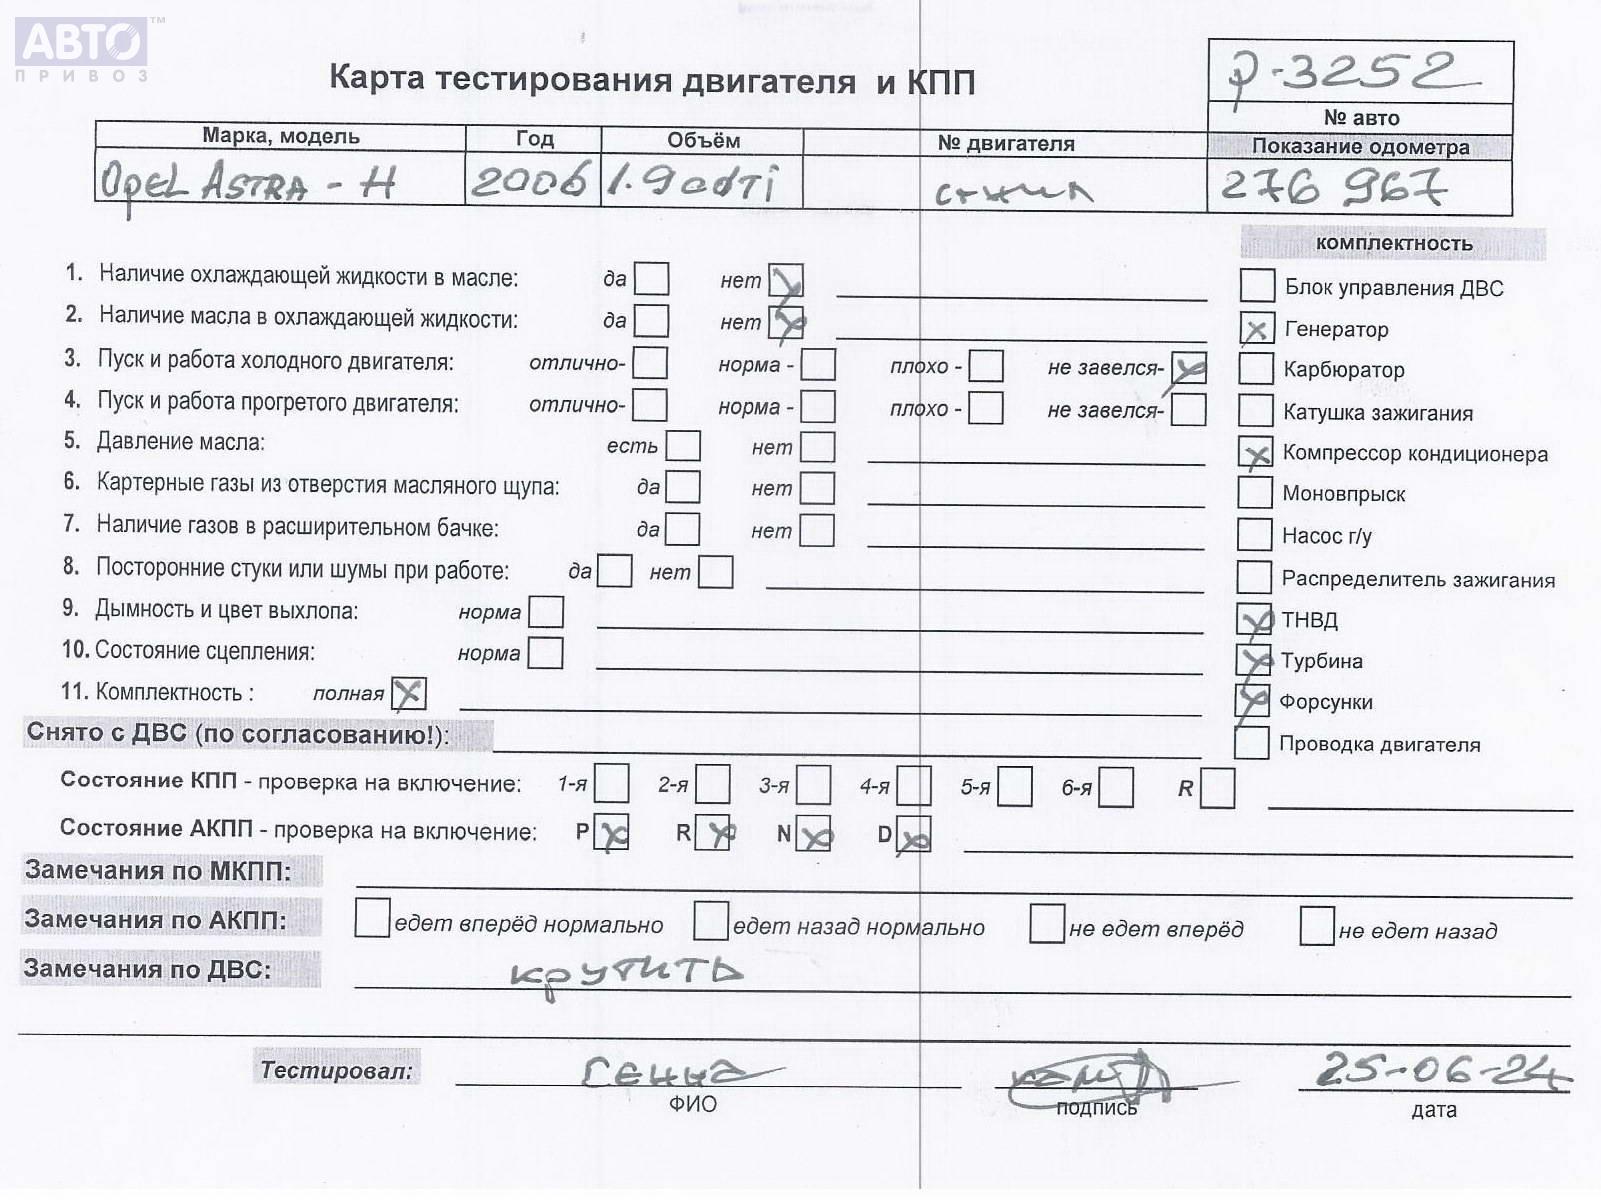 АВТО ™
ПРИВОЗ
Карта тестирования двигателя и КПП
р-3252
№ авто
Марка, модель Год Объём № двигателя Показание одометра
Opel Astra - H 2006 1.9cdti 276 967
комплектность
1. Наличие охлаждающей жидкости в масле: да нет
Блок управления ДВС
2. Наличие масла в охлаждающей жидкости: да нет
Генератор
3. Пуск и работа холодного двигателя: отлично- норма - плохо - не завелся-
Карбюратор
4. Пуск и работа прогретого двигателя: отлично- норма - плохо - не завелся-
Катушка зажигания
5. Давление масла: есть нет
Компрессор кондиционера
6. Картерные газы из отверстия масляного щупа: да нет
Моновпрыск
7. Наличие газов в расширительном бачке: да нет
Насос г/у
8. Посторонние стуки или шумы при работе: да нет
Распределитель зажигания
9. Дымность и цвет выхлопа: норма
ТНВД
10. Состояние сцепления: норма
Турбина
11. Комплектность : полная
Форсунки
Снято с ДВС (по согласованию!):
Проводка двигателя
Состояние КПП - проверка на включение: 1-я 2-я 3-я 4-я 5-я 6-я R
Состояние АКПП - проверка на включение: P R N D
Замечания по МКПП:
Замечания по АКПП: едет вперёд нормально едет назад нормально не едет вперёд не едет назад
Замечания по ДВС: крутить
Тестировал: Генна 25-06-24
ФИО подпись дата